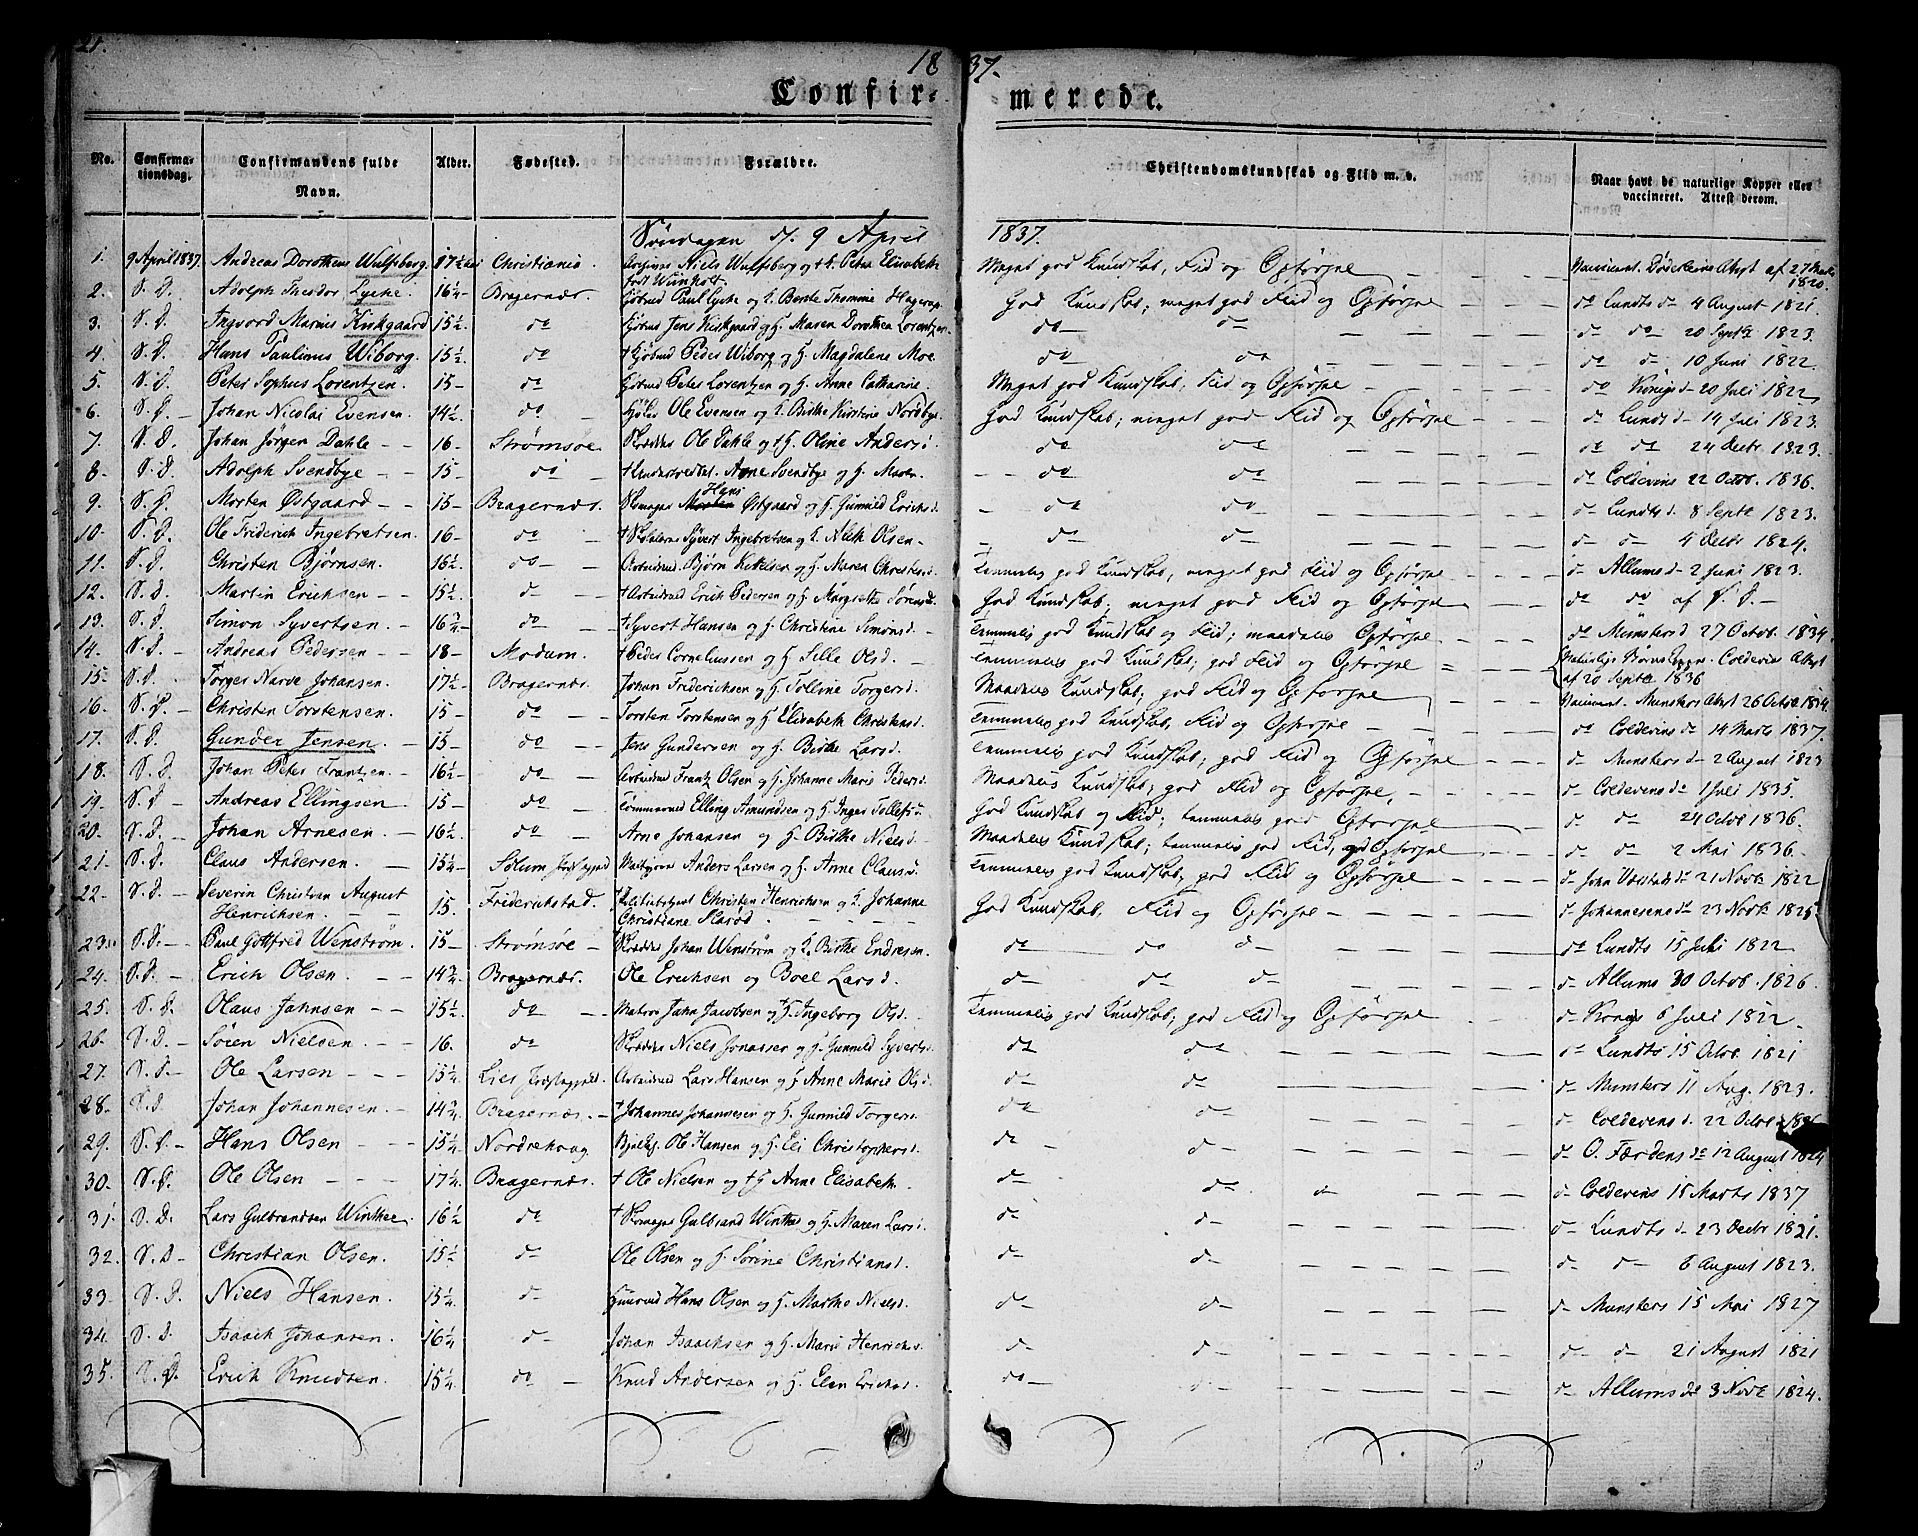 21.
18 37.
Confir= merede.
No. Confirma- Confirmandens fulde Alder. Fødested. Forældre. Christendomskundskab og Flid m. v. Naar havt de naturlige Kopper eller
tionsdag. Navn. vaccineret. Attest derom.
Søndagen d. 9 April 1837.
1. 9 April 1837. Andreas Dorotheus Wulfsberg. 17½ Christiania. Niels Wulfsberg og Petra Elisabeth Meget god Kundskab, Flid og Opførsel — Døderleins Attest af 27 Marts
født Winholt. 1820.
2. S. D. Adolph Theodor Lyche. 16¼ Bragernæs. Kjøbmd Paul Lyche og H. Bente Thomine Hagerup God Kundskab; meget god Flid og Opførsel do Lundts do 4 August 1821.
3. S. D. Ingvard Marius Kirkgaard 15½ do Kjøbmd Jens Kirkgaard og H. Maren Dorothea Lorentzen do do do do 20 Septbr 1823.
4. S. D. Hans Paulinus Wiborg. 15½ do † Kjøbmd Peder Wiborg og H. Magdalene Moe. do do do d 10 Juni 1822.
5. S. D. Peter Sophus Lorentzen. 15 do Kjøbmd Peter Lorentzen og H. Anne Cathrine. Meget god Kundskab, Flid og Opførsel do Kønigs d 20 Juli 1822
6. S. D. Johan Nicolai Evensen. 14½ do Ole Evensen og H. Birthe Kirstine Nordbye God Kundskab; meget god Flid og Opførsel d Lunds d 14 Juli 1823.
7. S. D. Johan Jørgen Dahle 16 Strømsøe Skrædder Ole Dahle og † H. Oline Andersd. do do do do 24 Decbr 1823.
8. S. D. Adolph Svendbye 15 do Arne Svendbye og H. Maren do do d Coldevins 22 Octbr. 1836.
9. S. D. Morten Østgaard 15 Bragernæs. Skomager Hans Østgaard og H. Gunild Erichsd. do do d Lundts d. 8 Septbr 1823.
10. S. D. Ole Friderich Ingebretsen. 16 do Syvert Ingebretsen og H. Olsen do do d d 4 Decbr 1824.
11. S. D. Christen Bjørnsen. 16½ do Arbeidsmd Bjørn Kittelsen og H. Maren Christensd. Temmelig god Kundskab, meget god Flid og Opførsel d Allums d 2 Juni 1823.
12. S. D. Martin Erichsen 15½ d † Arbeidsmd Erich Pedersen og H. Margrethe Sørensd. God Kundskab; meget god Flid og Opførsel do do af S. D.
13. S. D. Simon Syvertsen. 16¾ do † Syvert Hansen og H. Christine Simonsd. Temmelig god Kundskab og Flid; maadelig Opførsel do Münsters d 27 Octob. 1834
14. S. D. Andreas Pedersen 18 Modum. † Peder Corneliussen og H. Sille Olsd. Temmelig god Kundskab; god Flid og Opførsel Naturlige Børne Kopper. Coldevins Attest
15. S. D. Torger Narve Johansen. 17½ Bragernæs. Johan Friderichsen og H. Tolline Torgersd. Maadelig Kundskab, god Flid og Opførsel af 20 Septbr 1836
16. S. D. Christen Torstensen. 15 do Torsten Torstensen og H. Elisabeth Christensd. Temmelig god Kundskab, Flid og Opførsel Munsters Attest 26 Octbr 1834.
17. S. D. Gunder Jensen. 15 do Jens Gundersen og H. Birthe Larsd. Temmelig god Kundskab; god Flid og Opførsel do Coldevins do 14 Marts 1837.
18. S. D. Johan Peter Frantzen. 16½ do Arbeidsmd Frantz Olsen og H. Johanne Marie Pedersd. Maadelig Kundskab; god Flid og Opførsel d Munsters d 2 August 1823
19. S. D. Andreas Ellingsen 15 do Tømmermd Elling Amundsen og H. Inger Tollefsd. God Kundskab og Flid; temmelig god Opførsel d Coldevens d 1 Juli 1835.
20. S. D. Johan Arnesen. 16½ do Arne Johansen og H. Birthe Nielsd. Maadelig Kundskab; temmelig god Flid, og Opførsel d d 24 Octob 1836.
21. S. D. Claus Andersen. 15¼ Solum Anders Larsen og H. Anne Clausd. Temmelig god Kundskab, god Flid og Opførsel d d 2 Mai 1836.
22. S. D. Severin Christian August 15. Friderichstad. Christen Henrichsen og H. Johanne God Kundskab, Flid og Opførsel d John d 21 Novbr 1822
Henrichsen. Christiane d Johannesens d 23 Novbr 1825
23. S. D. Paul Gottfred Wenstrøm. 15 Strømsøe Skrædder Johan Wenstrøm og H. Birthe Endresen. do do d do Lundts 15 Juli 1822
24. S. D. Erich Olsen. 14¾ Bragernæs. Ole Erichsen og Boel Larsd. d d d d Allums 30 Octob. 1826
25. S. D. Olaus Jahnsen 15½ do Matros Jahn Jacobsen og H. Ingeborg Olsd. Temmelig god Kundskab; god Flid og Opførsel d Kongs 6 Juli 1822
26. S. D. Søren Nielsen. 16. do Skrædder Niels Jonassen og H. Gunnild Syvertsd. do do d Lundts 15 Octob. 1821
27. S. D. Ole Larsen 15¼ Lier Præstegjæld. Arbeidsmd Lars Hansen og H. Anne Marie Olsd. d d d Munsters 11 Aug. 1823.
28. S. D. Johan Johannesen. 14¾ Bragernæs. † Johannes Johannesen og H. Gunnild Torgersd. do d do Coldevens d. 22 Octbr
29. S. D. Hans Olsen 15¼ Nordrehoug Ole Hansen og H. Eli Christophersd. d d d O. Færdens do 12 August 1824
30. S. D. Ole Olsen 17¼ Bragernæs. † Ole Nielsen og † H. Anne Elisabeth. d d d d Coldevens 15 Marts 1837
31. S. D. Lars Gulbrandsen Winther. 16½ do † Skomager Gulbrand Winther og H. Maren Larsd. d d d Lundts d 23 Decbr 1821.
32. S. D. Christian Olsen. 15½ d Ole Olsen og H. Sørine Christiansd. d d d d 6 August 1823.
33. S. D. Niels Hansen. 15¼ d Hans Olsen og H. Marthe Nielsd. d d d Munsters 15 Mai 1827
34. S. D. Isaach Johansen. 16¼ d Johan Isaachsen og H. Marie Henrichsd. d d d d 21 August 1821
35. S. D. Erich Knudsen. 15¼ do Knud Andersen og H. Elen Erichsd. do d d Allums d 3 Novbr 1824.